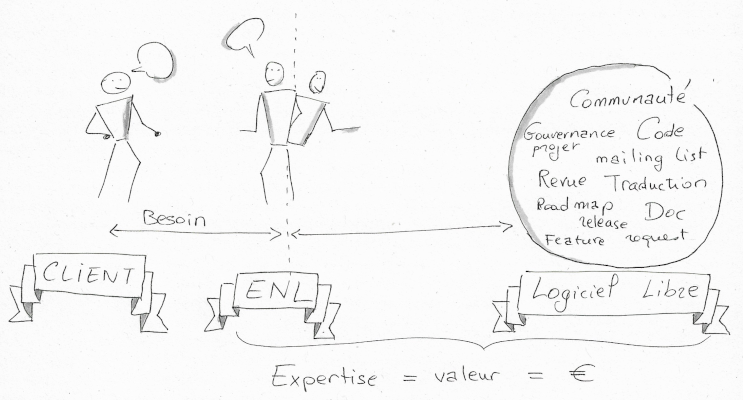 Communauté
Gouvernance Code
projet
mailing list
Revue Traduction
Roadmap Doc
release
Feature request
Besoin
CLIENT
ENL
Logiciel Libre
Expertise = valeur = €